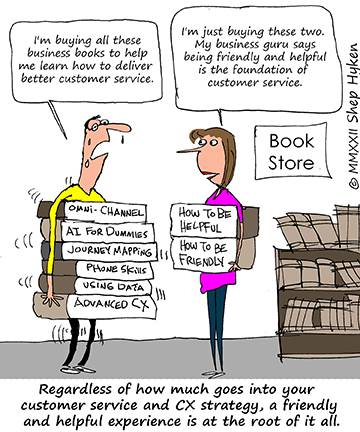 I'm buying all these
business books to help
me learn how to deliver
better customer service.
I'm just buying these two.
My business guru says
being friendly and helpful
is the foundation of
customer service.
Book
Store
© MMXXII Shep Hyken
OMNI-CHANNEL
AI FOR DUMMIES
JOURNEY MAPPING
PHONE SKILLS
USING DATA
ADVANCED CX
HOW TO BE
HELPFUL
HOW TO BE
FRIENDLY
Regardless of how much goes into your
customer service and CX strategy, a friendly
and helpful experience is at the root of it all.